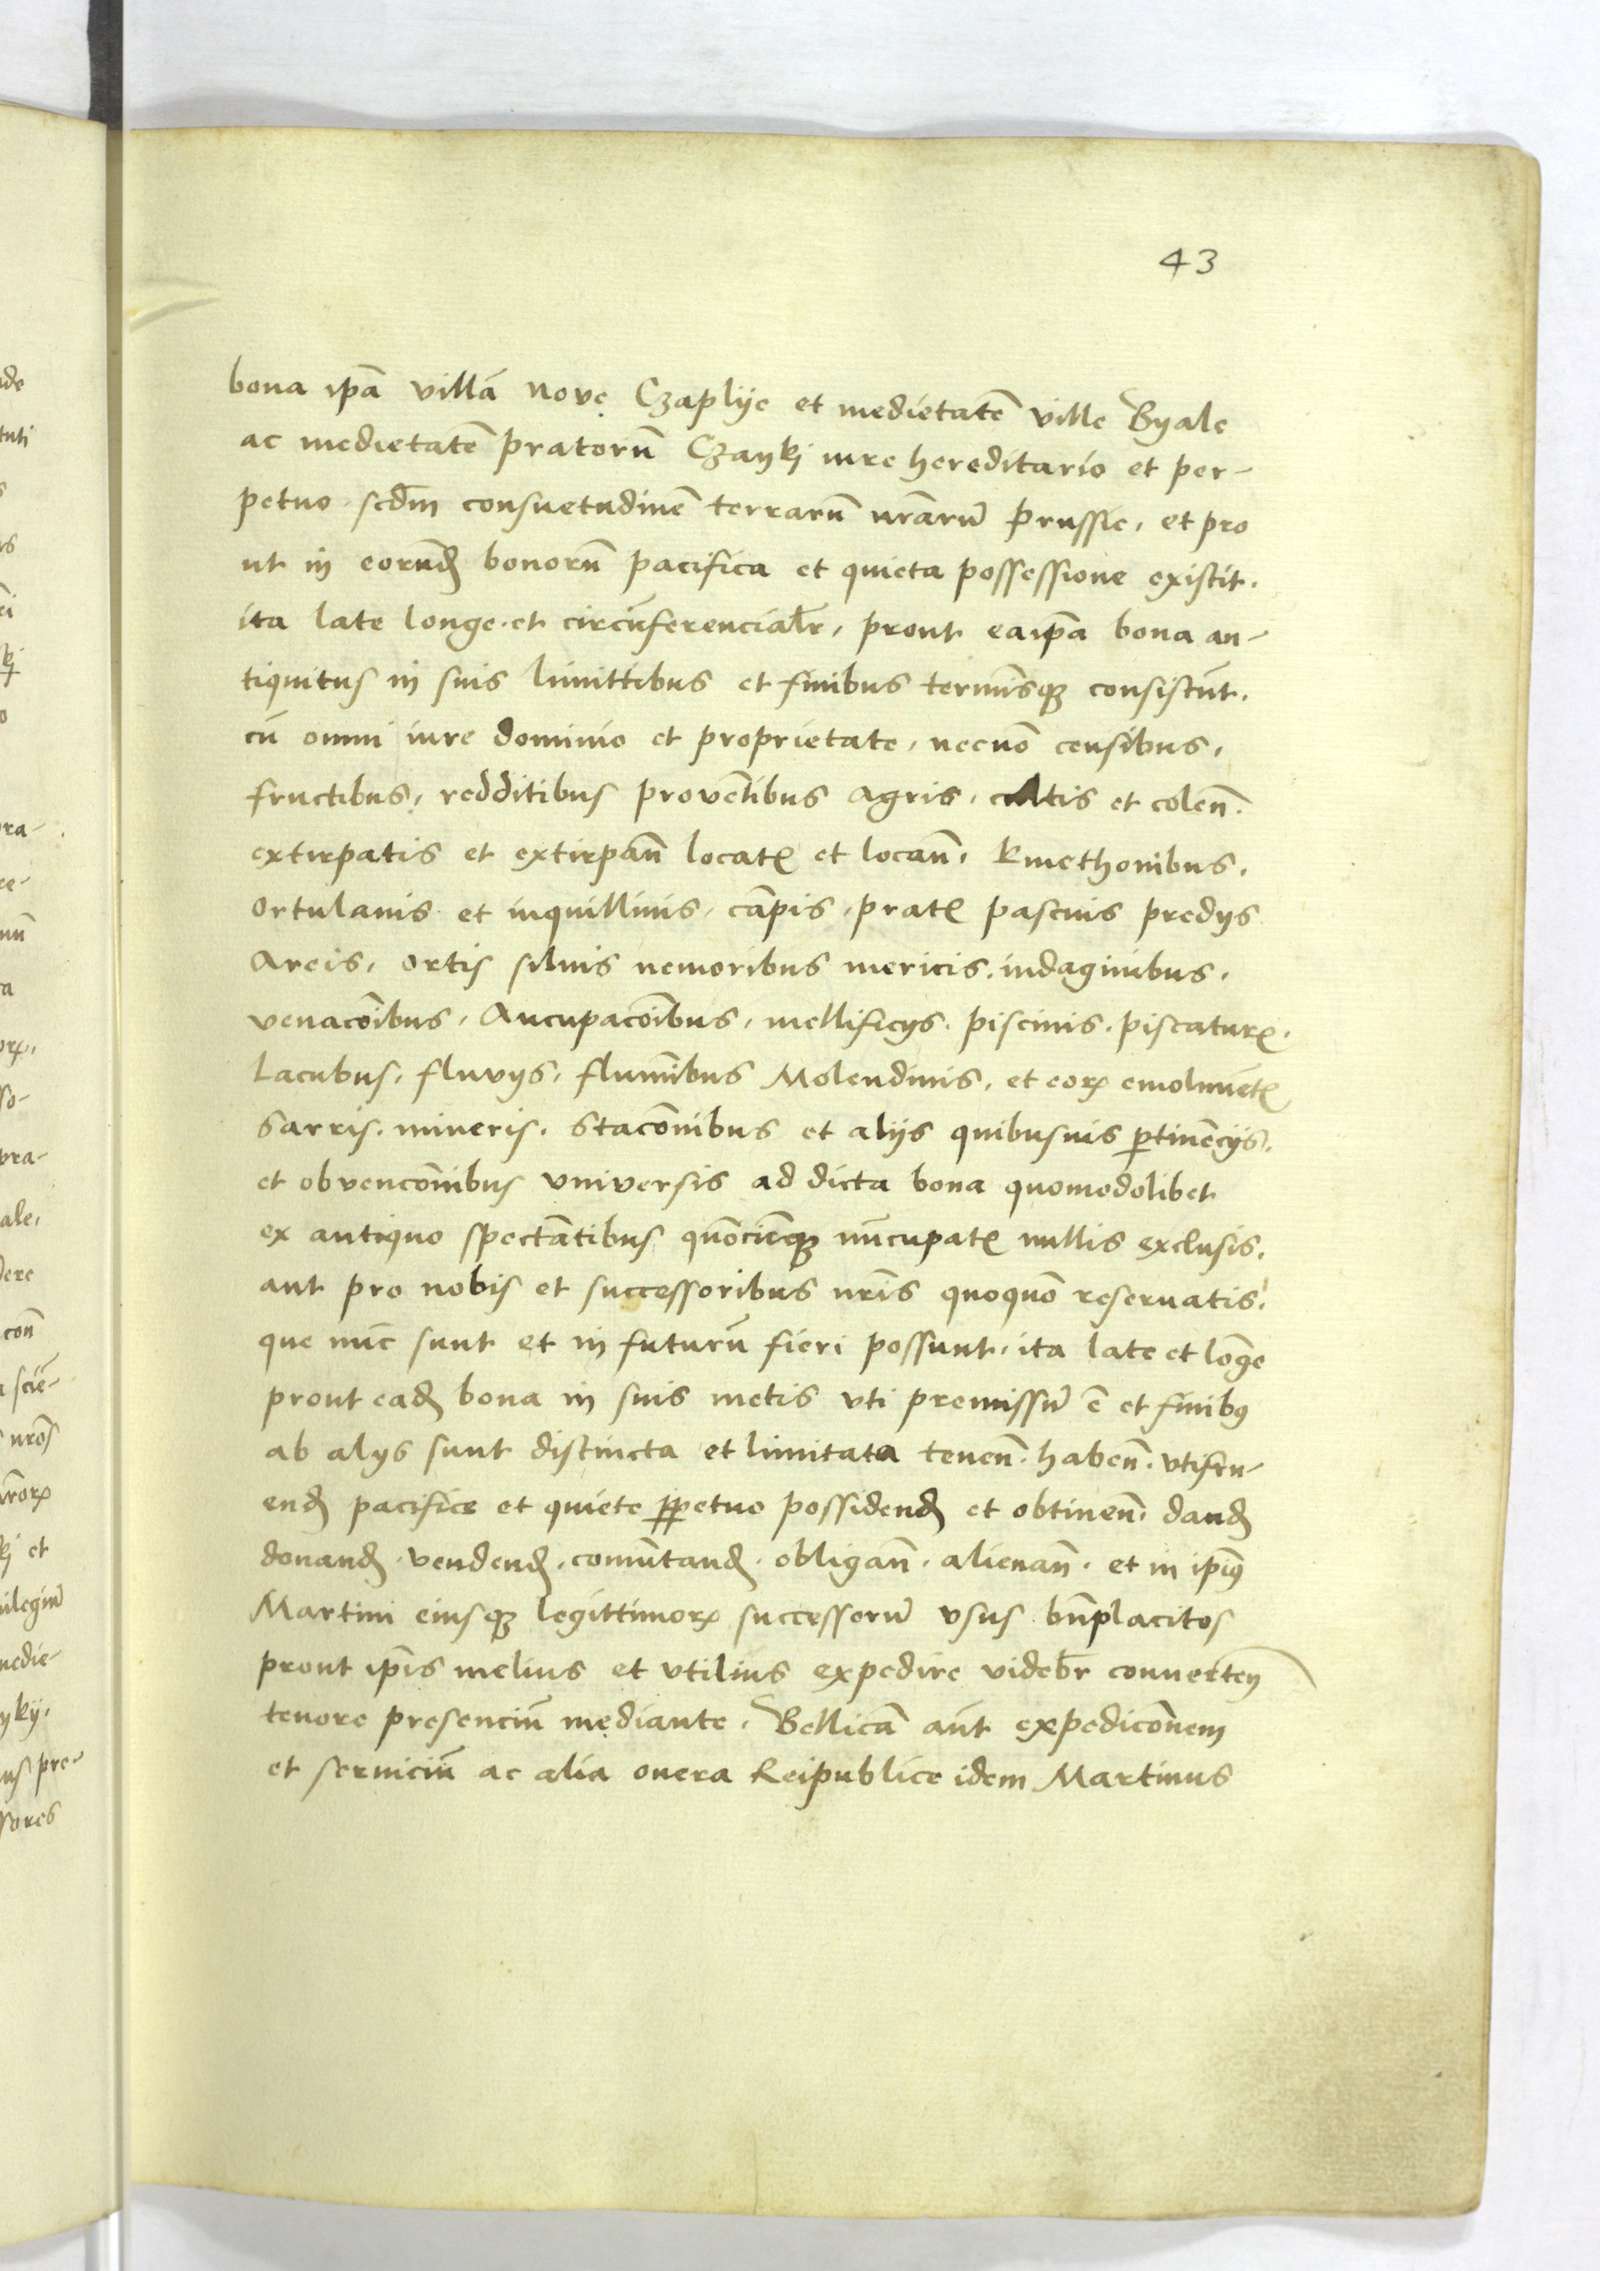 43
bona ip̄a villā nove Czaplye et medietatē ville Byale
ac medietatē pratorū Czayki iure hereditario et per-
petuo scd̄m consuetudinē terrarū nr̄arū Prussie, et pro
ut in eorund̄ bonorū pacifica et quieta possessione existit.
ita late longe et circūferencial̄r, prout eaip̄a bona an-
tiquitus in suis limittibus et finibus termīsqꝫ consistūt.
cū omni iure dominio et proprietate, necnō censibus,
fructibus, redditibus provētibus agris, cultis et colen̄.
extirpatis et extirpan̄ locatꝭ et locan̄, kmethonibus,
ortulanis et inquillinis, cāpis, pratꝭ pascuis predys
Areis, ortis siluis nemoribus mericis, indaginibus,
venacōibus, Aucupacōibus, mellificys. piscinis. piscaturꝭ.
Lacubus, fluvys, flumībus Molendinis, et eorꝝ emolumētꝭ
Sarris. mineris. Stacōnibus et alijs quibusuis ꝑtinēcijs.
et obvencōnibus universis ad dicta bona quomodolibet
ex antiquo spectātibus quōcūqꝫ nūcupatꝭ nullis exclusis.
aut pro nobis et successoribus nr̄is quoquō reseruatis.
que nūc sunt et in futurū fieri possunt, ita late et lōge
prout ead̄ bona in suis metis vti premissū ē et finibꝰ
ab alys sunt distincta et limitata tenen̄. haben̄. vtifru-
end̄ pacifice et quiete ꝑpetuo possidend̄ et obtinen̄. dand̄
donand̄. vendend̄. comūtand̄. obligan̄. alienan̄. et in ip̄iꝰ
Martini eiusqꝫ legittimorꝝ successorū vsus bn̄placitos
prout ip̄is melius et vtilius expedire videb̄r conuerten̄
tenore presenciū mediante. Bellicā aūt expedicōnem
et seruiciū ac alia onera Reipublice idem Martinus